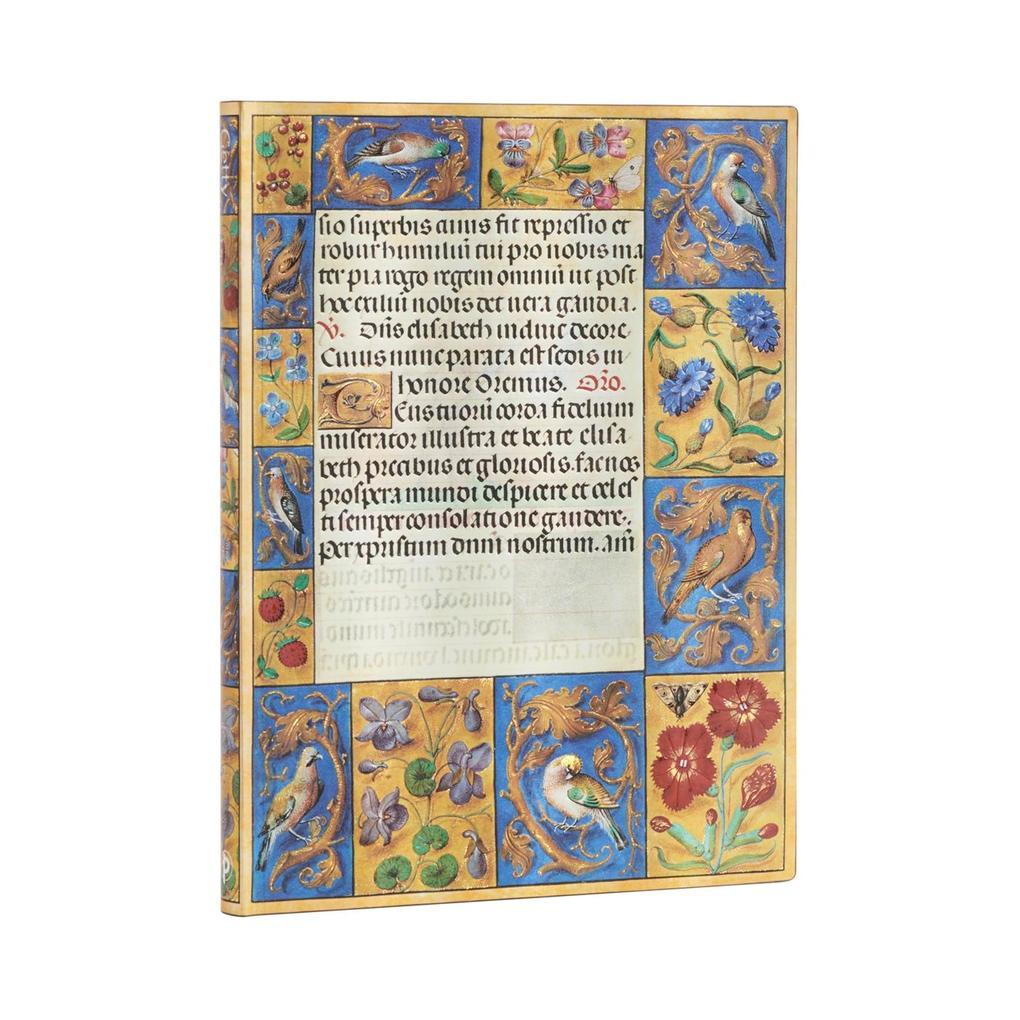 sio superbis cuius fit repressio et
robur humiliū cui pro nobis ma
ter pia rogo regem omniū ut post
hoc exiliū nobis det uera gaudia.
V. Dn̄s elisabeth induit decore.
Cuius nunc parata est sedis in
honore Oremus. Oro.
Deus tuorū corda fidelium
miserator illustra et beate elisa
beth precibus et gloriosis. fac nos
prospera mundi despicere et celes
ti semper consolatione gaudere.
Per xpristum dnm̄ nostrum. am̄
P